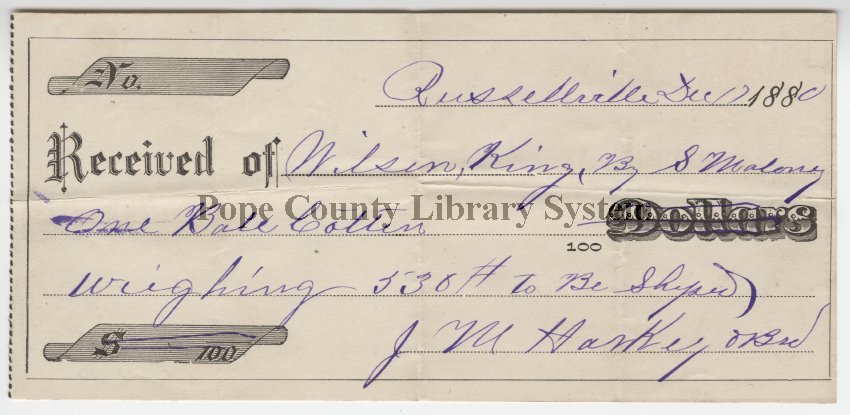 No.
Russellville Dec 1880
Received of Wilson, King, By S Maloney
One Bale Cotten Dollars
100
Pope County Library System
weighing 530 # to Be Shiped
$ 100
J M Harkey & Bro